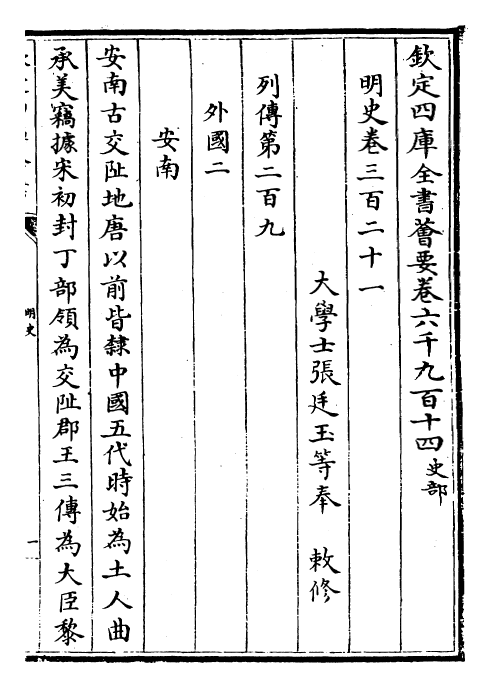 欽定四庫全書薈要卷六千九百十四史部
明史卷三百二十一
大學士張廷玉等奉　敕修
列傳第二百九
外國二
安南
安南古交阯地唐以前皆隸中國五代時始為土人曲
承美竊據宋初封丁部領為交阯郡王三傳為大臣黎
明史
一